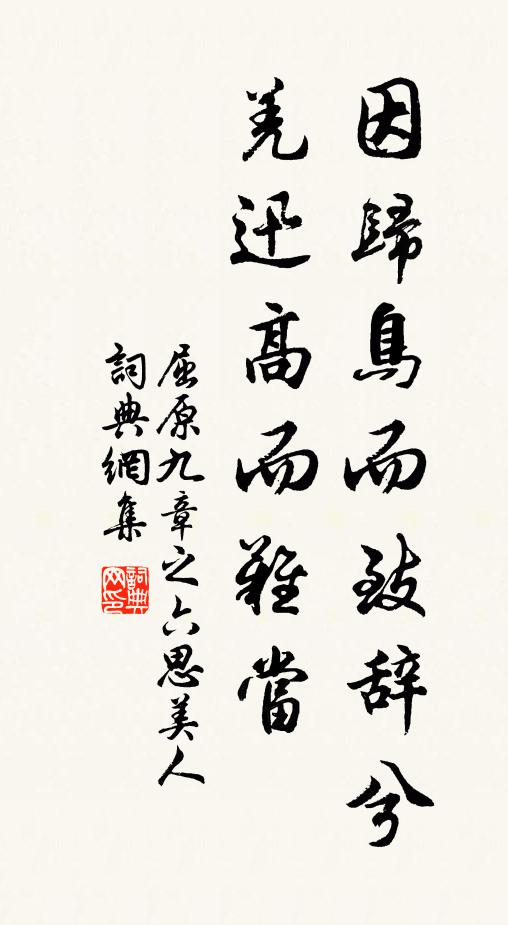 因歸鳥而致辞兮
羌迅高而難當
屈原九章之六思美人
詞典網集
詞典網印